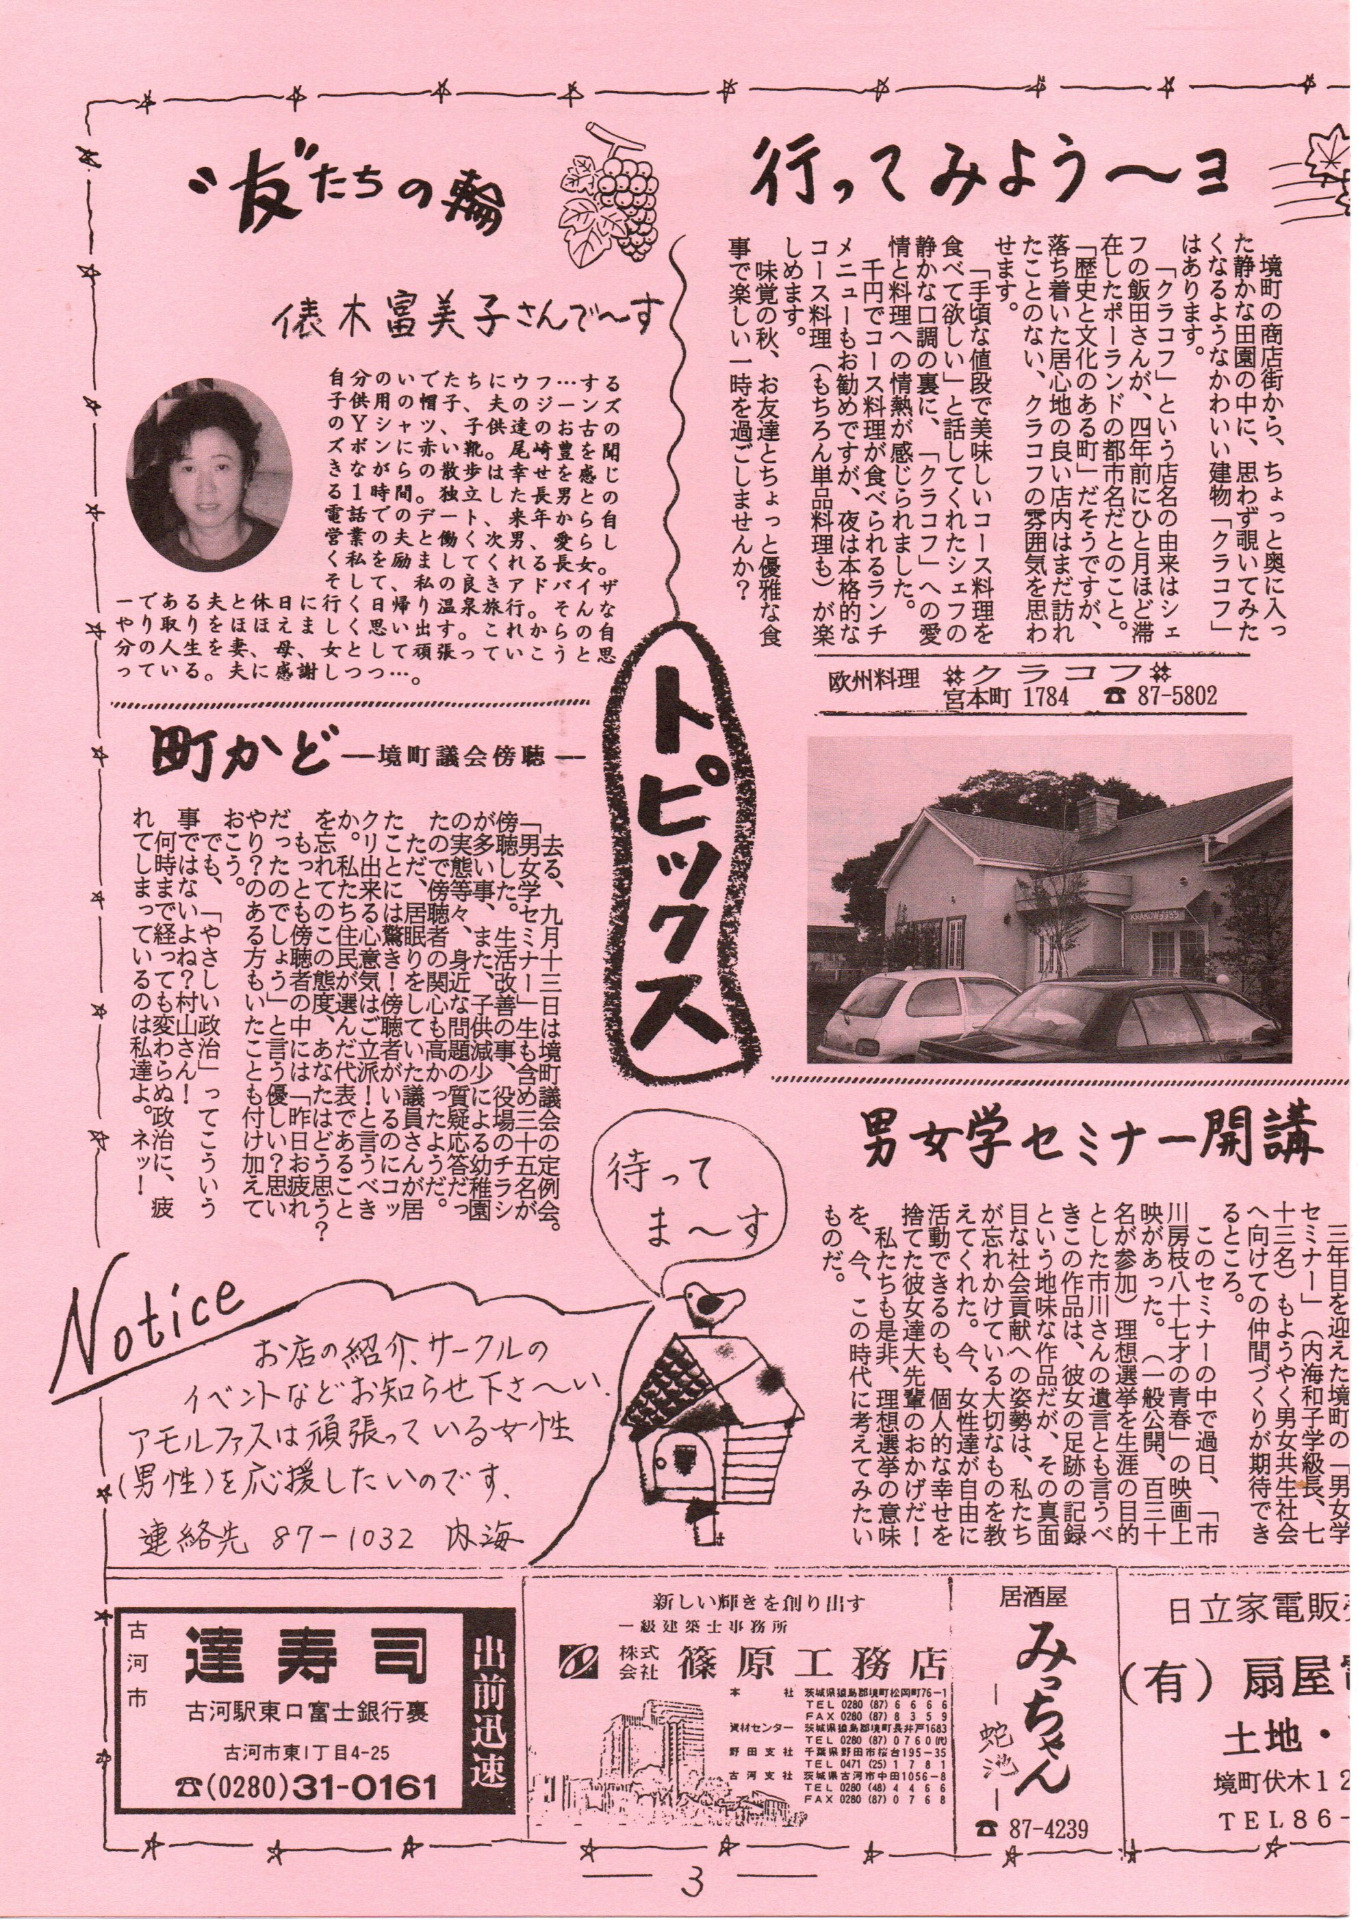 行ってみよう〜ヨ
境町の商店街から、ちょっと奥に入っ
た静かな田園の中に、思わず覗いてみた
くなるようなかわいい建物「クラコフ」
はあります。
「クラコフ」という店名の由来はシェ
フの飯田さんが、四年前にひと月ほど滞
在したポーランドの都市名だとのこと。
「歴史と文化のある町」だそうですが、
落ち着いた居心地の良い店内はまだ訪れ
たことのない、クラコフの雰囲気を思わ
せます。
「手頃な値段で美味しいコース料理を
食べて欲しい」と話してくれたシェフの
静かな口調の裏に、「クラコフ」への愛
情と料理への情熱が感じられました。
千円でコース料理が食べられるランチ
メニューもお勧めですが、夜は本格的な
コース料理(もちろん単品料理も)が楽
しめます。
味覚の秋、お友達とちょっと優雅な食
事で楽しい一時を過ごしませんか?
欧州料理 クラコフ
宮本町 1784 ☎ 87-5802
トピックス
"友"たちの輪
俵木富美子さんで〜す
自分のいでたちにウフ…する
子供用の帽子、夫のジーンズ
のYシャツ、子供達のお古の
ズボンに赤い靴。尾崎豊を聞
きながらの散歩は幸せを感じ
る1時間。独立した長男との
電話でのデート、来年から自
営業の夫と働く次男、愛らし
く私を励ましてくれる長女。
そして、私の良きアドバイザ
ーである夫と休日に行く日帰り温泉旅行。そんな
やり取りをほほえましく思い出す。これからの自
分の人生を妻、母、女として頑張っていこうと思
っている。夫に感謝しつつ…。
町かど ―境町議会傍聴―
去る、九月十三日は境町議会の定例会。
「男女学セミナー」生も含め三十五名が
傍聴した。生活改善の事、役場のチラシ
が多い事、また、子供減少による幼稚園
の実態等々、身近な問題の質疑応答だっ
たので傍聴者の関心も高かったようだ。
ただ、居眠りをしていた議員さんが居
たことには驚き!傍聴者がいるのにコッ
クリ出来る心意気はご立派!と言うべき
か。私たち住民が選んだ代表であること
を忘れてのこの態度、あなたはどう思う?
もっとも傍聴者の中には「昨日お疲れ
だったのでしょう」と言う優しい?思い
やり?のある方もいたことも付け加えて
おこう。
でも、「やさしい政治」ってこういう
事ではないよね?村山さん!
何時まで経っても変わらぬ政治に、疲
れてしまっているのは私達よ。ネッ!
男女学セミナー開講
三年目を迎えた境町の「男女学
セミナー」(内海和子学級長、七
十三名)もようやく男女共生社会
へ向けての仲間づくりが期待でき
るところ。
このセミナーの中で過日、「市
川房枝八十七才の青春」の映画上
映があった。(一般公開、百三十
名が参加)理想選挙を生涯の目的
とした市川さんの遺言とも言うべ
きこの作品は、彼女の足跡の記録
という地味な作品だが、その真面
目な社会貢献への姿勢は、私たち
が忘れかけている大切なものを教
えてくれた。今、女性達が自由に
活動できるのも、個人的な幸せを
捨てた彼女達大先輩のおかげだ!
私たちも是非、理想選挙の意味
を、今、この時代に考えてみたい
ものだ。
待って
ま〜す
Notice
お店の紹介、サークルの
イベントなどお知らせ下さ〜い。
アモルファスは頑張っている女性
(男性)を応援したいのです。
連絡先 87-1032 内海
古河市
達寿司
出前迅速
古河駅東口富士銀行裏
古河市東1丁目4-25
☎(0280)31-0161
新しい輝きを創り出す
一級建築士事務所
株式会社 篠原工務店
本社 茨城県猿島郡境町松岡町76-1
TEL 0280 (87) 6666
FAX 0280 (87) 8359
資材センター 茨城県猿島郡境町長井戸1683
TEL 0280 (87) 0760(代)
野田支社 千葉県野田市桜台195-35
TEL 0471 (25) 1781
古河支社 茨城県古河市中田1056-8
TEL 0280 (48) 4466
FAX 0280 (87) 0768
居酒屋
みっちゃん
―蛇池―
☎ 87-4239
日立家電販
(有)扇屋
土地・
境町伏木12
TEL86-
3